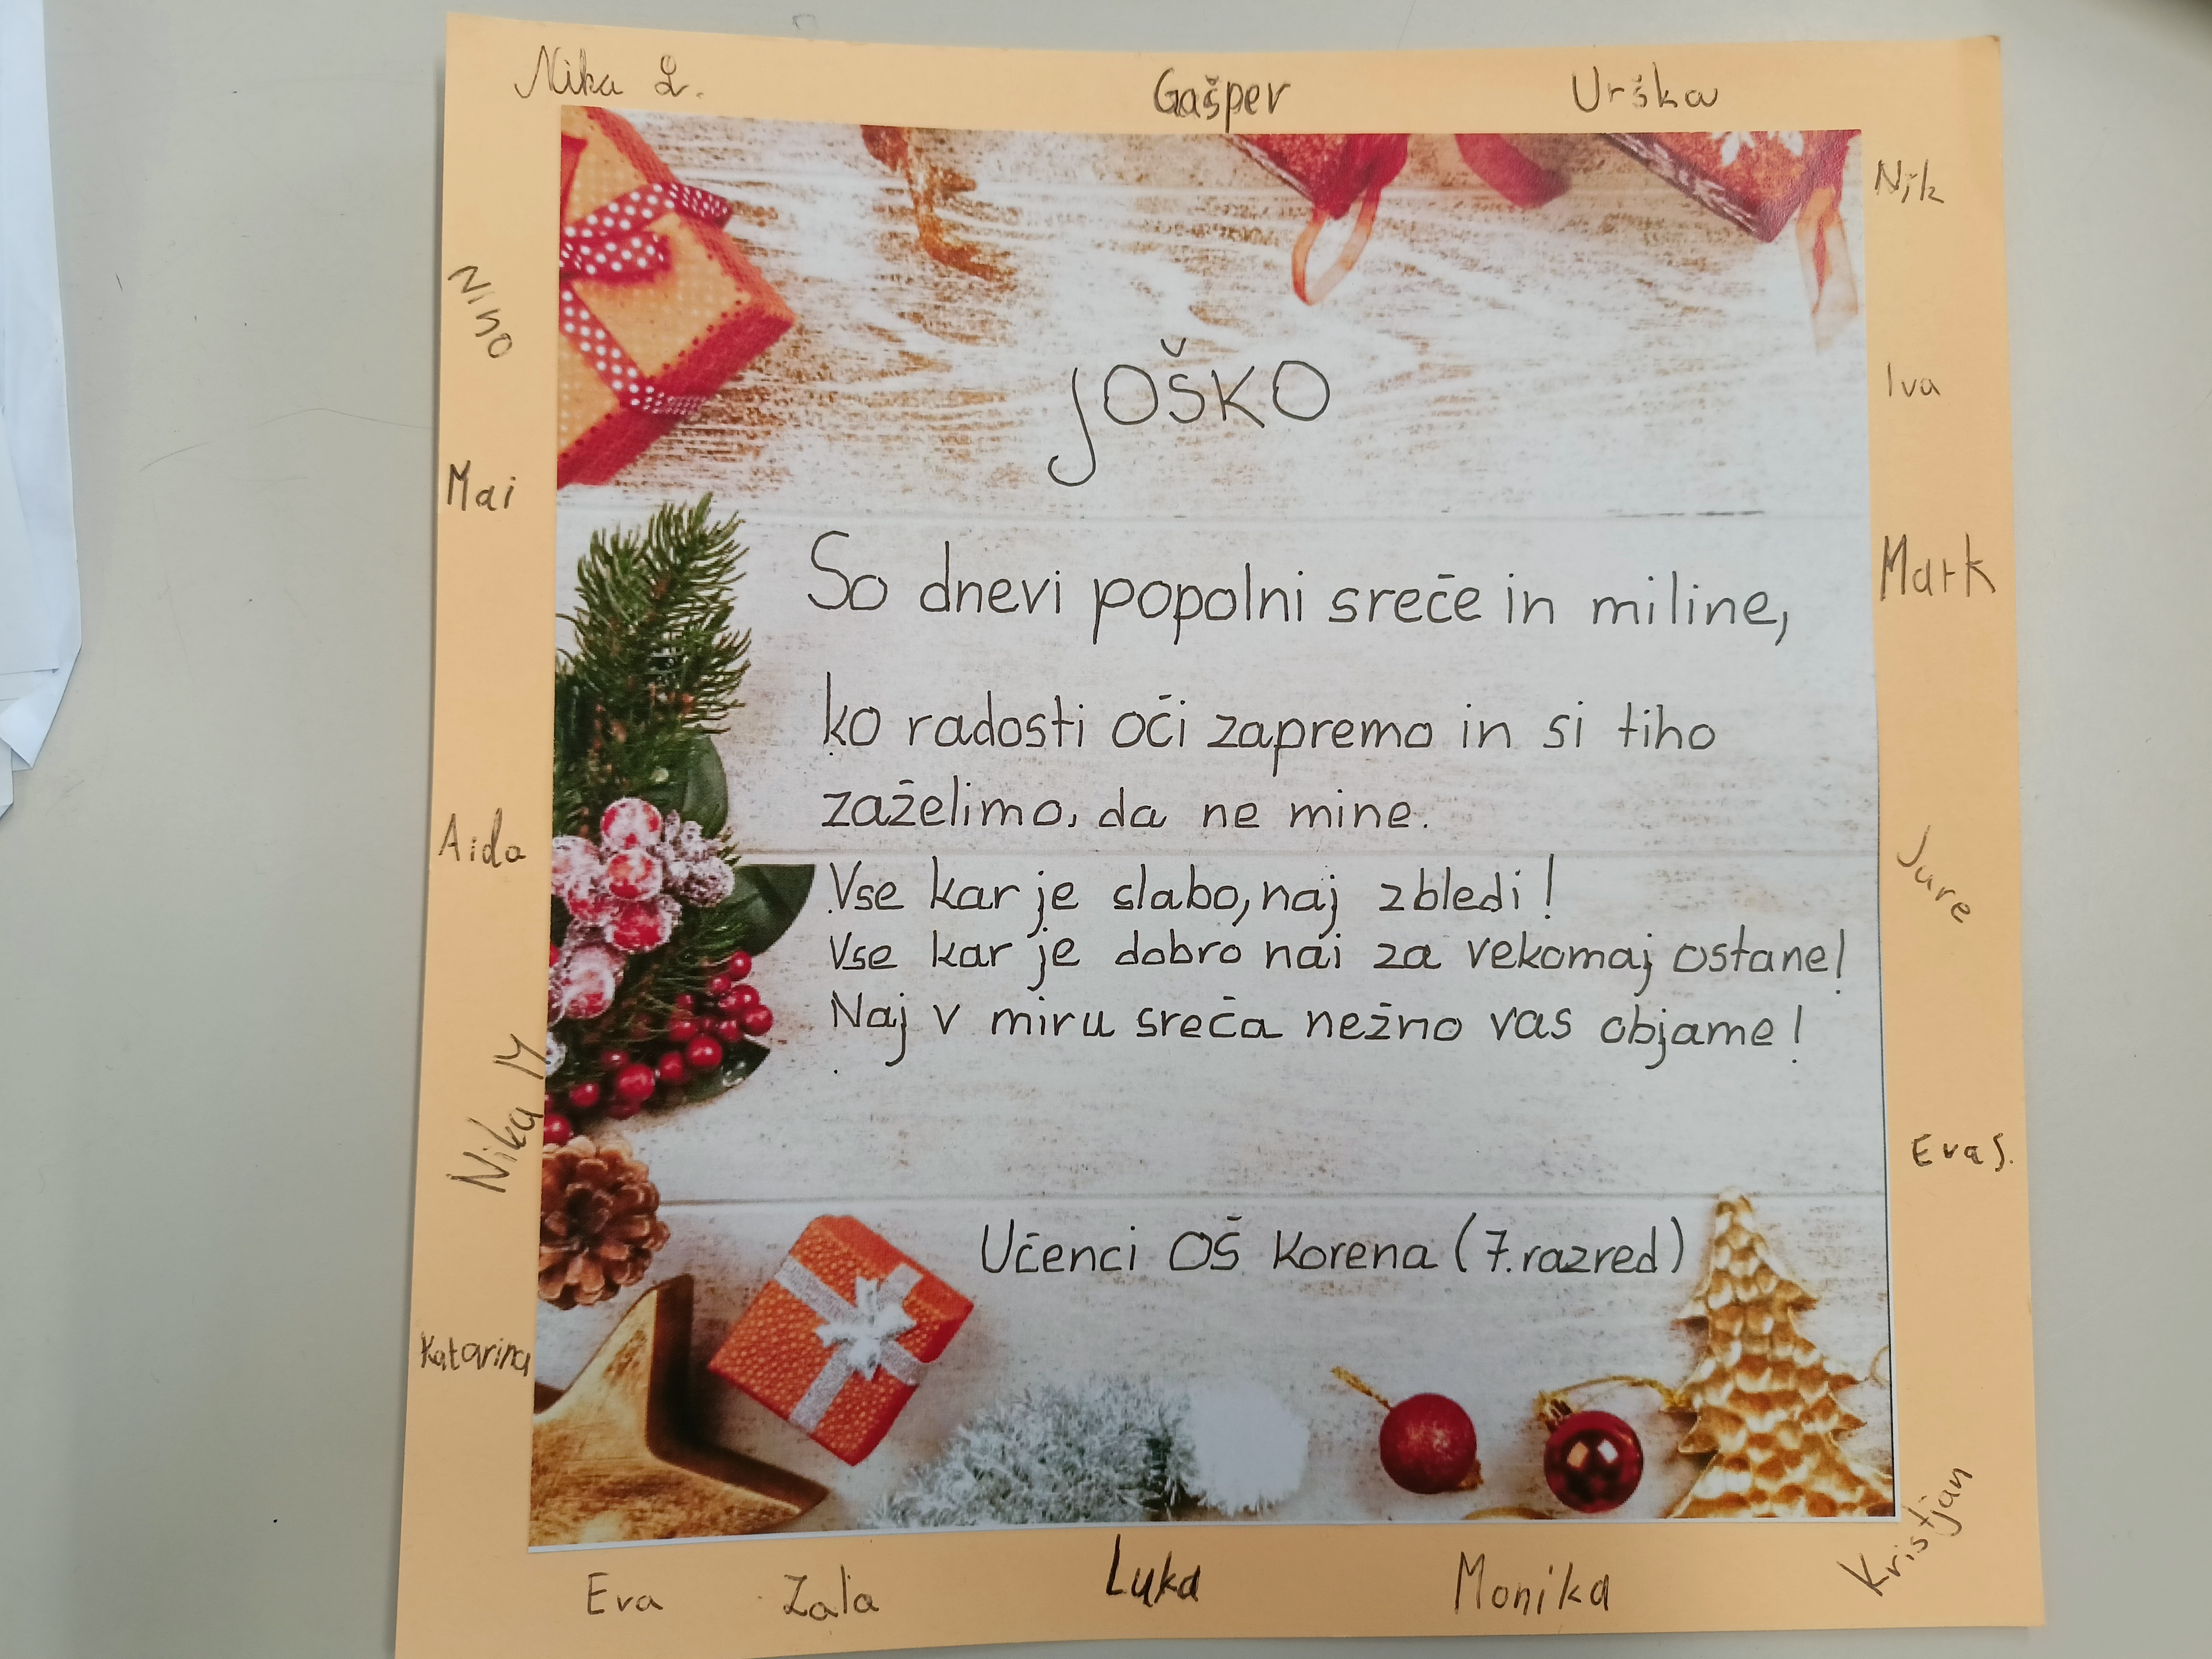 Nika L.
Gašper
Urška
Nik
Nino
JOŠKO
Iva
Mai
Mark
So dnevi popolni sreče in miline,
ko radosti oči zapremo in si tiho
zaželimo, da ne mine.
Aida
Jure
Vse kar je slabo, naj zbledi!
Vse kar je dobro naj za vekomaj ostane!
Naj v miru sreča nežno vas objame!
Nika M
Eva S.
Učenci OŠ Korena (7. razred)
Katarina
Kristjan
Eva
Zala
Luka
Monika